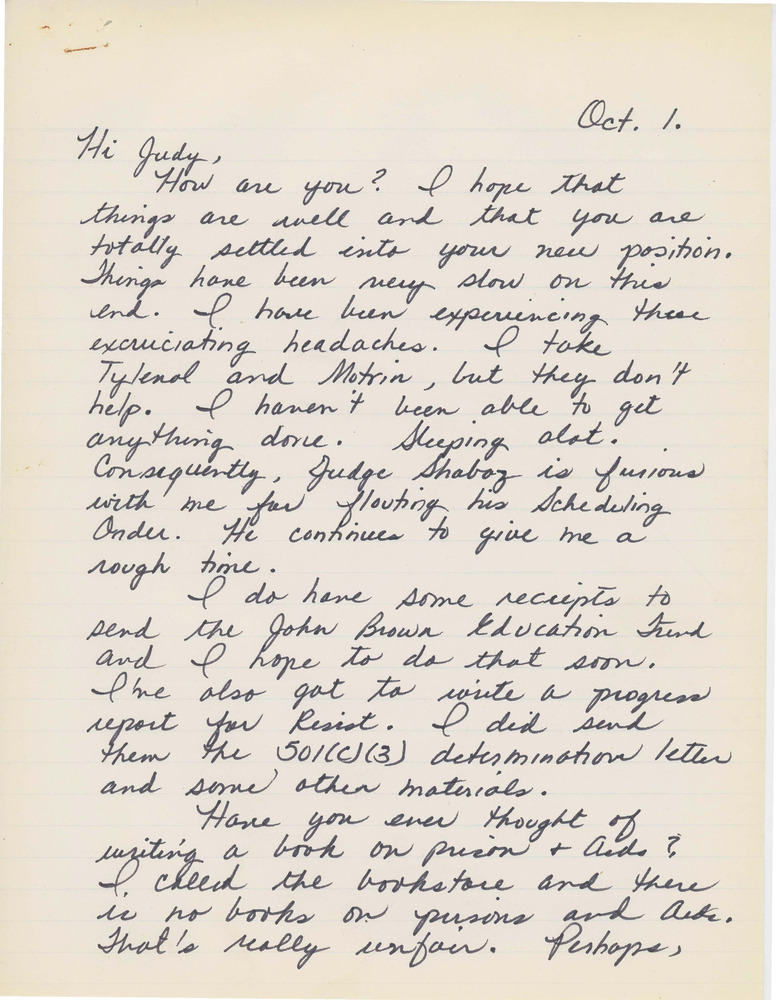 Oct. 1.
Hi Judy,
How are you? I hope that
things are well and that you are
totally settled into your new position.
Things have been very slow on this
end. I have been experiencing these
excruciating headaches. I take
Tylenol and Motrin, but they don't
help. I haven't been able to get
anything done. Sleeping alot.
Consequently, Judge Shabaz is furious
with me for flouting his Scheduling
Order. He continues to give me a
rough time.
I do have some receipts to
send the John Brown Education Fund
and I hope to do that soon.
I've also got to write a progress
report for Resist. I did send
them the 501(c)(3) determination letter
and some other materials.
Have you ever thought of
writing a book on prison + Aids?
I called the bookstore and there
is no books on prisons and Aids.
That's really unfair. Perhaps,